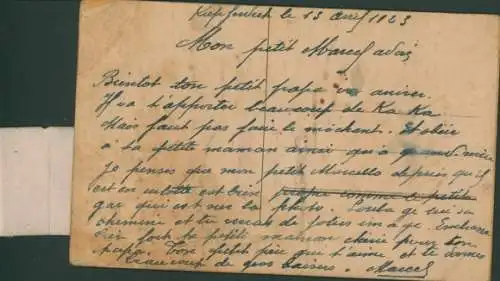 le 13 avril 1923
Mon petit Marcel adoré
Bientot ton petit papa va ariver.
Il va t'apporter beaucoup de Ka Ka
Mais faut pas faire le méchant. et obéir
à ta petite maman ainsi qu'à grand-mère
Je penses que mon petit Marcello depuis qu'il
est en culotte est bien propre comme le petit
gar qui est sur la photo.
cheminé et tu verras de jolies image. Embrasse
bien fort ta petite maman chérie pour ton
papa. Ton petit père qui t'aime et te donnes
beaucoup de gros baisers. Marcel